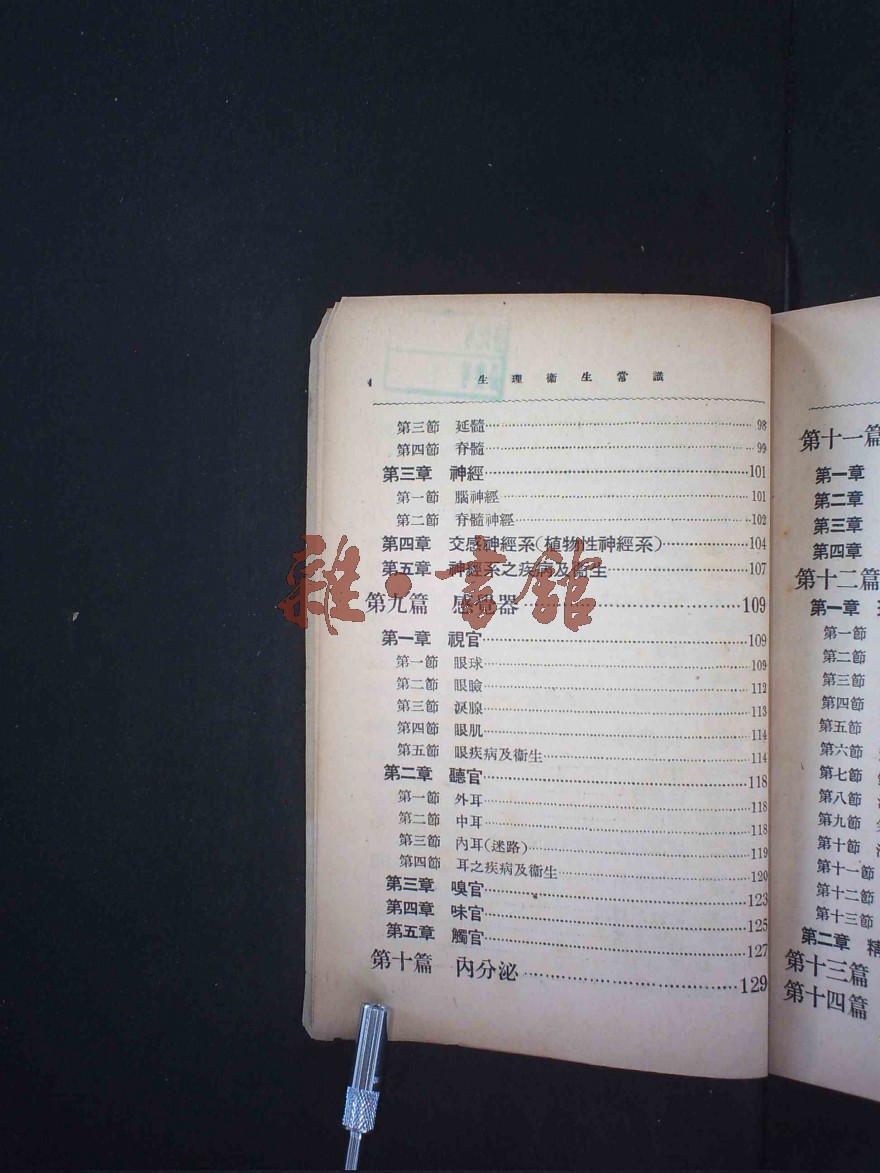 4 生理衞生常識
第三節 延髓 98
第四節 脊髓 99
第三章 神經 101
第一節 腦神經 101
第二節 脊髓神經 102
第四章 交感神經系(植物性神經系) 104
第五章 神經系之疾病及衞生 107
第九篇 感覺器 109
第一章 視官 109
第一節 眼球 109
第二節 眼瞼 112
第三節 淚腺 113
第四節 眼肌 114
第五節 眼疾病及衞生 114
第二章 聽官 118
第一節 外耳 118
第二節 中耳 118
第三節 內耳(迷路) 119
第四節 耳之疾病及衞生 120
第三章 嗅官 123
第四章 味官 125
第五章 觸官 127
第十篇 內分泌 129
雜·書館
第十一篇
第一章
第二章
第三章
第四章
第十二篇
第一章
第一節
第二節
第三節
第四節
第五節
第六節
第七節
第八節
第九節
第十節
第十一節
第十二節
第十三節
第二章 精
第十三篇
第十四篇